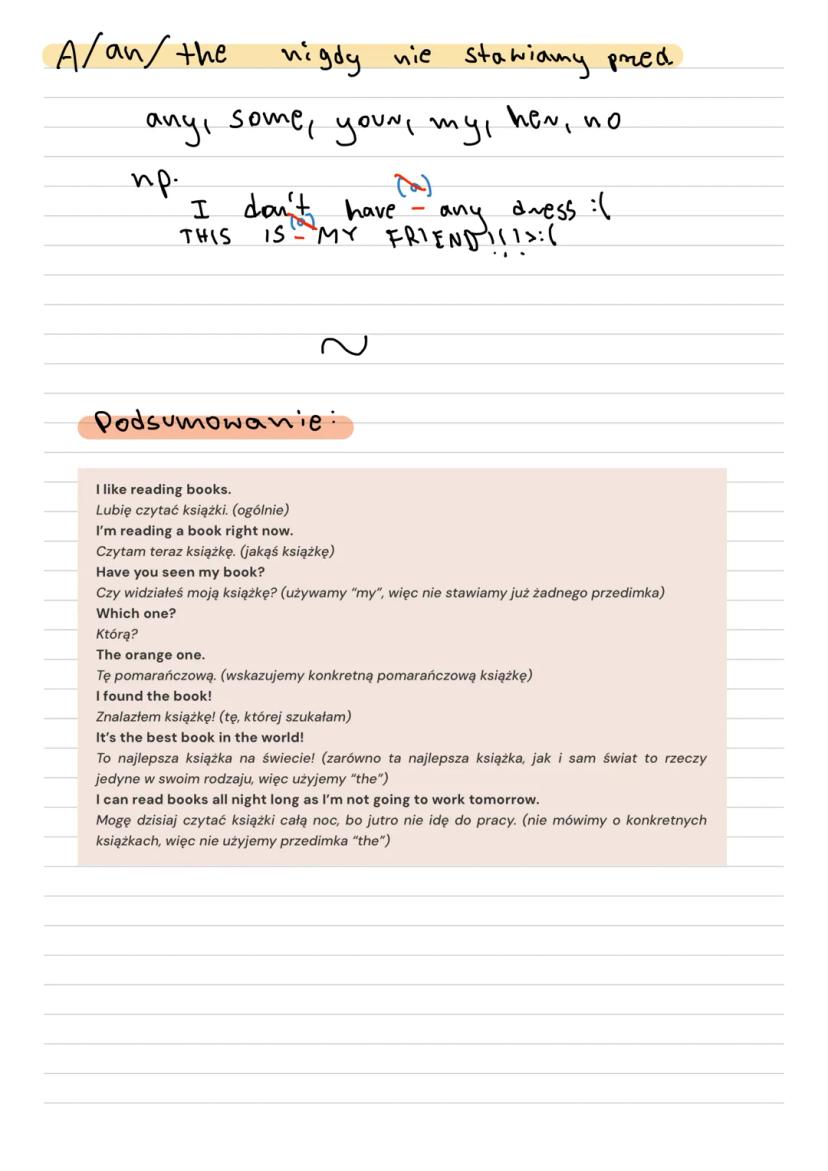 A/an/the nigdy nie stawiamy przed
any, some, your, my, her, no
np.
(a)
I don't have - any dress :(
(a)
THIS IS - MY FRIEND!!! >:(
~
Podsumowanie:
I like reading books.
Lubię czytać książki. (ogólnie)
I'm reading a book right now.
Czytam teraz książkę. (jakąś książkę)
Have you seen my book?
Czy widziałeś moją książkę? (używamy "my", więc nie stawiamy już żadnego przedimka)
Which one?
Którą?
The orange one.
Tę pomarańczową. (wskazujemy konkretną pomarańczową książkę)
I found the book!
Znalazłem książkę! (tę, której szukałam)
It's the best book in the world!
To najlepsza książka na świecie! (zarówno ta najlepsza książka, jak i sam świat to rzeczy
jedyne w swoim rodzaju, więc użyjemy "the")
I can read books all night long as I'm not going to work tomorrow.
Mogę dzisiaj czytać książki całą noc, bo jutro nie idę do pracy. (nie mówimy o konkretnych
książkach, więc nie użyjemy przedimka "the")